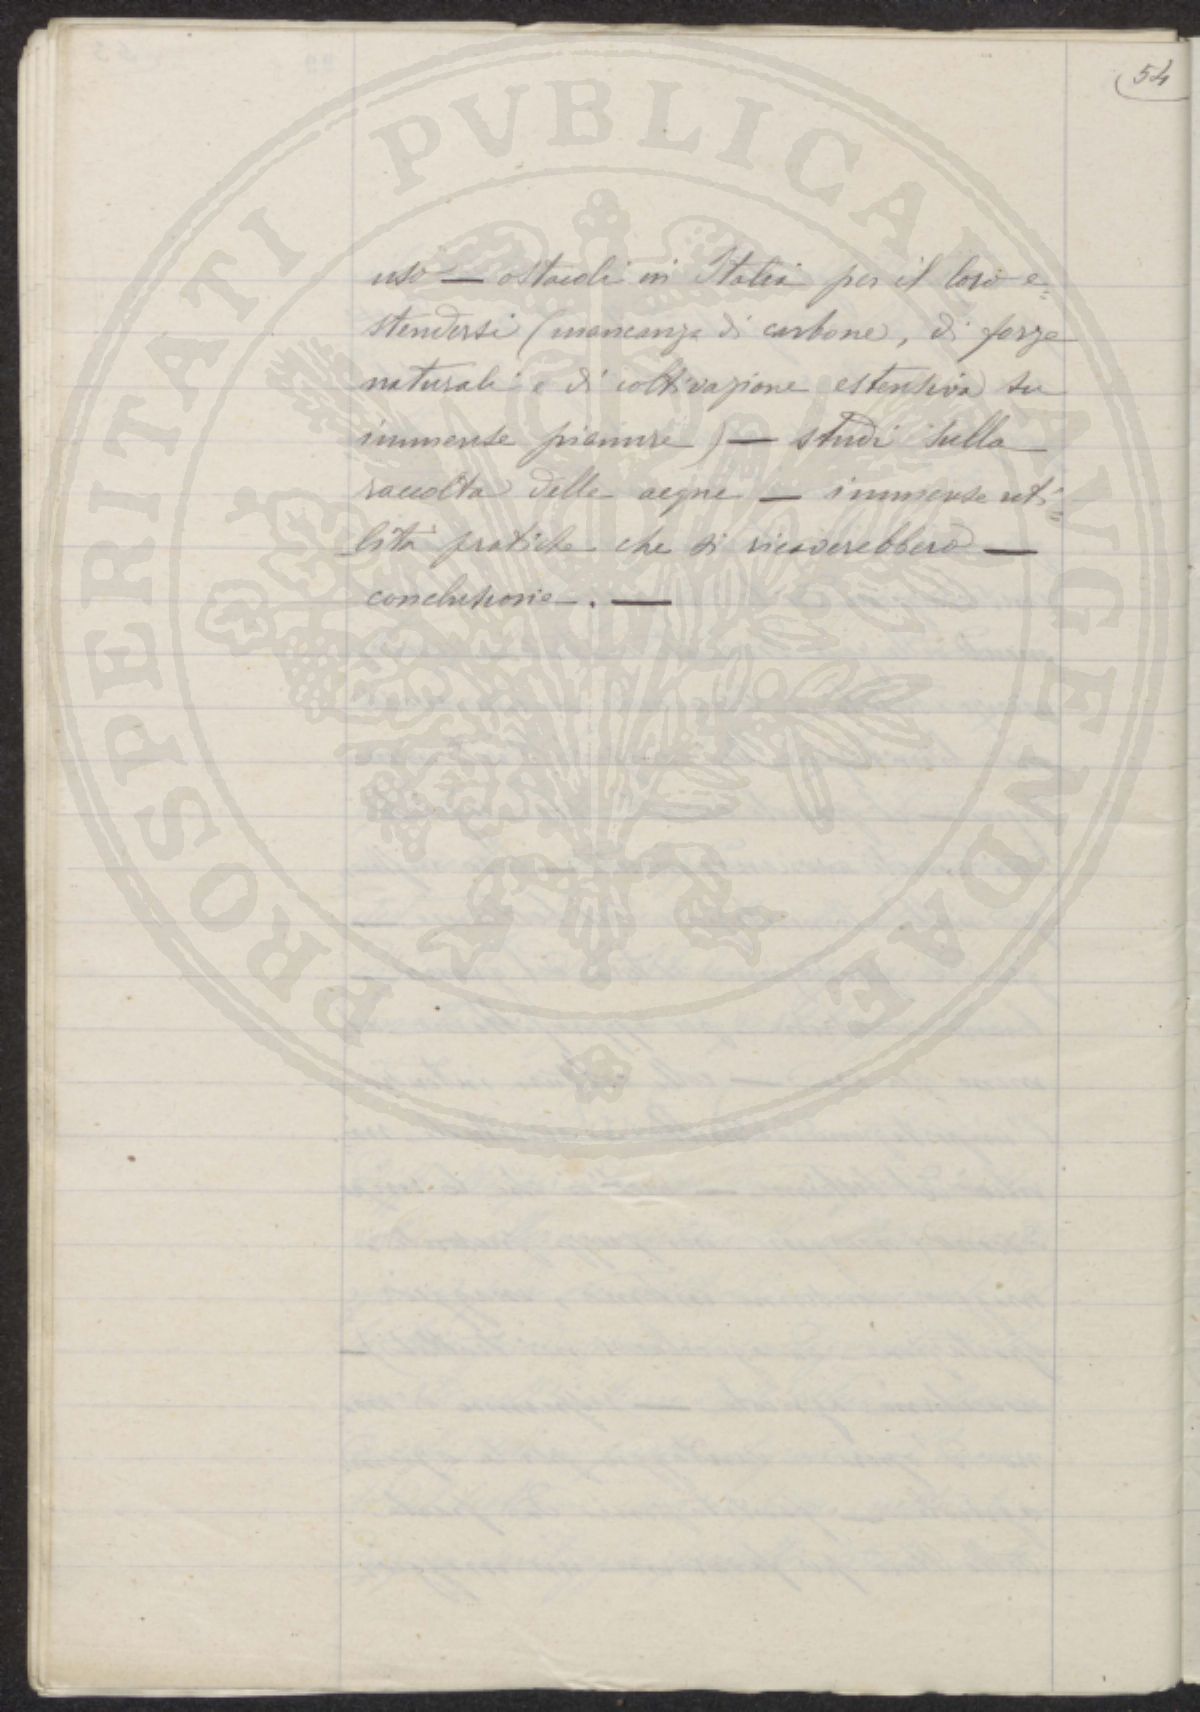 54
uso — ostacoli in Italia per il loro e=
stendersi (mancanza di carbone, di forze
naturali e di coltivazione estensiva su
immense pianure) — studi sulla
raccolta delle acque — immense uti=
lità pratiche che si ricaverebbero —
conclusione. —
PROSPERITATI PVBLICAE AVGENDAE